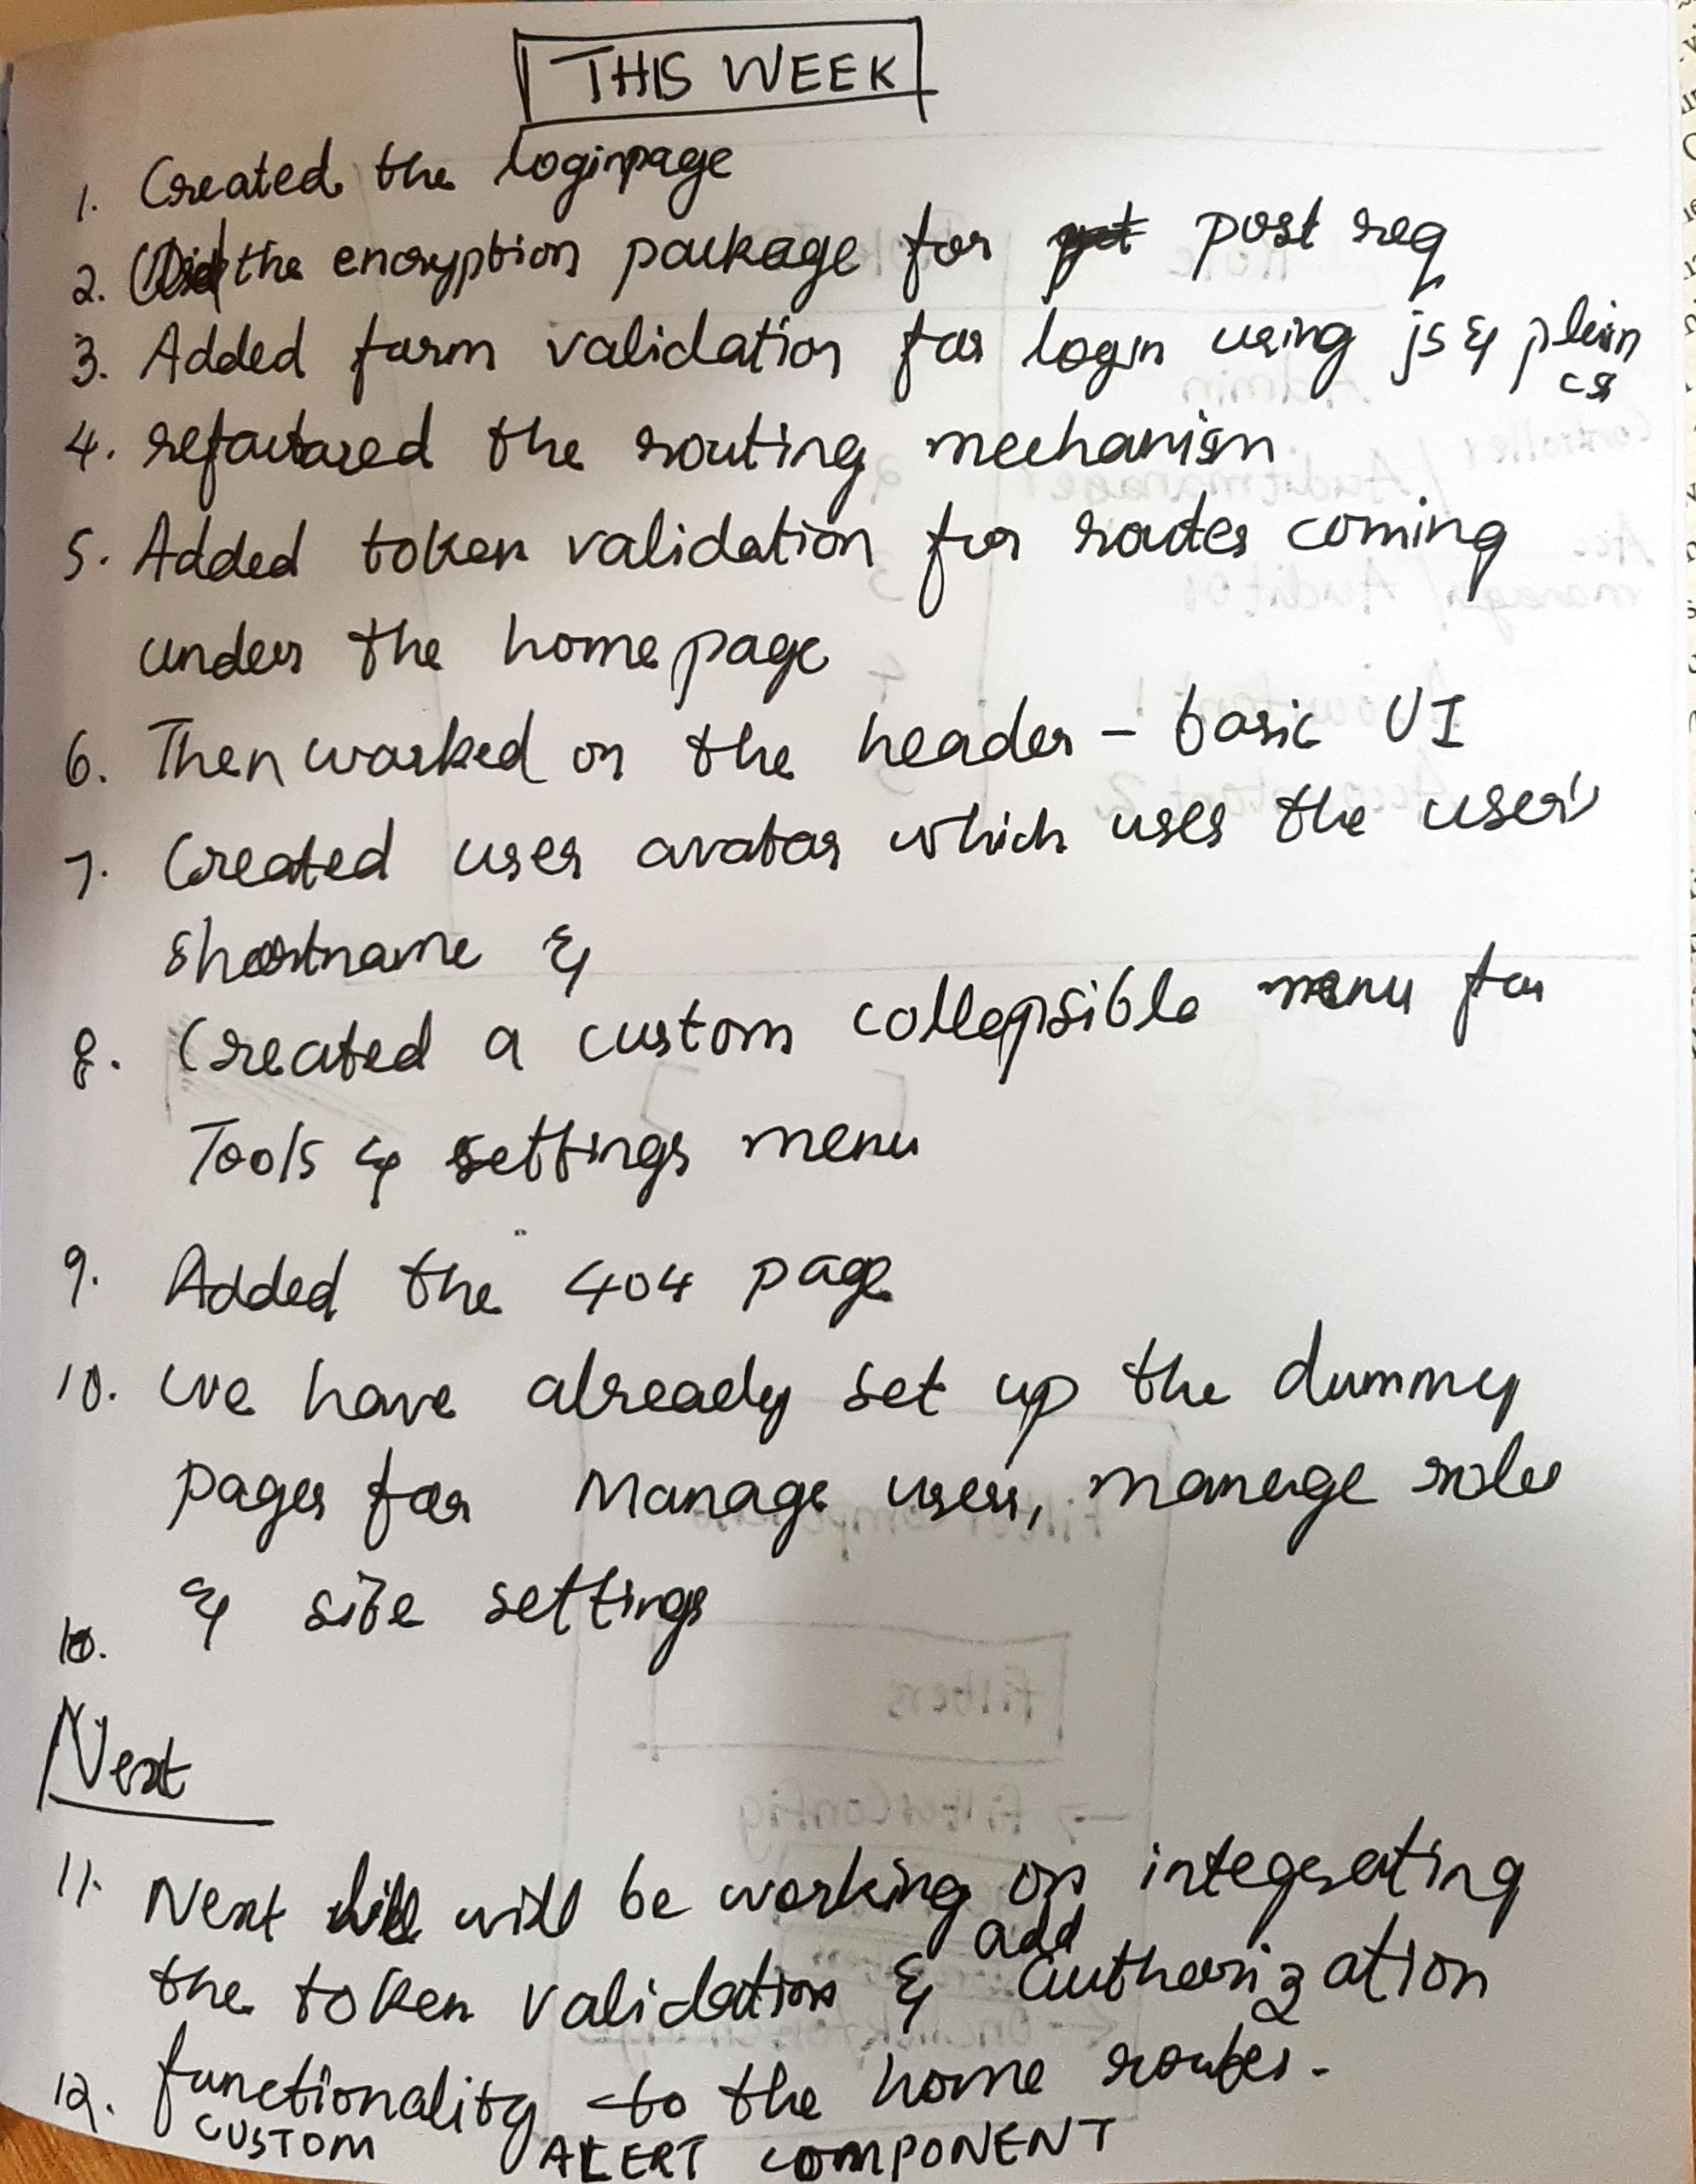 THIS WEEK
1. Created the loginpage
2. Used the encryption package for post req
3. Added form validation for login using js & plain
css
4. refactored the routing mechanism
5. Added token validation for routes coming
under the home page
6. Then worked on the header - basic UI
7. Created user avatar which uses the user's
shortname &
8. Created a custom collapsible menu for
Tools & settings menu
9. Added the 404 page
10. we have already set up the dummy
pages for Manage users, manage roles
& site settings
10.
Next
11. Next will be working on integerating
add
the token validation & authorization
functionality to the home routes.
12. CUSTOM ALERT COMPONENT